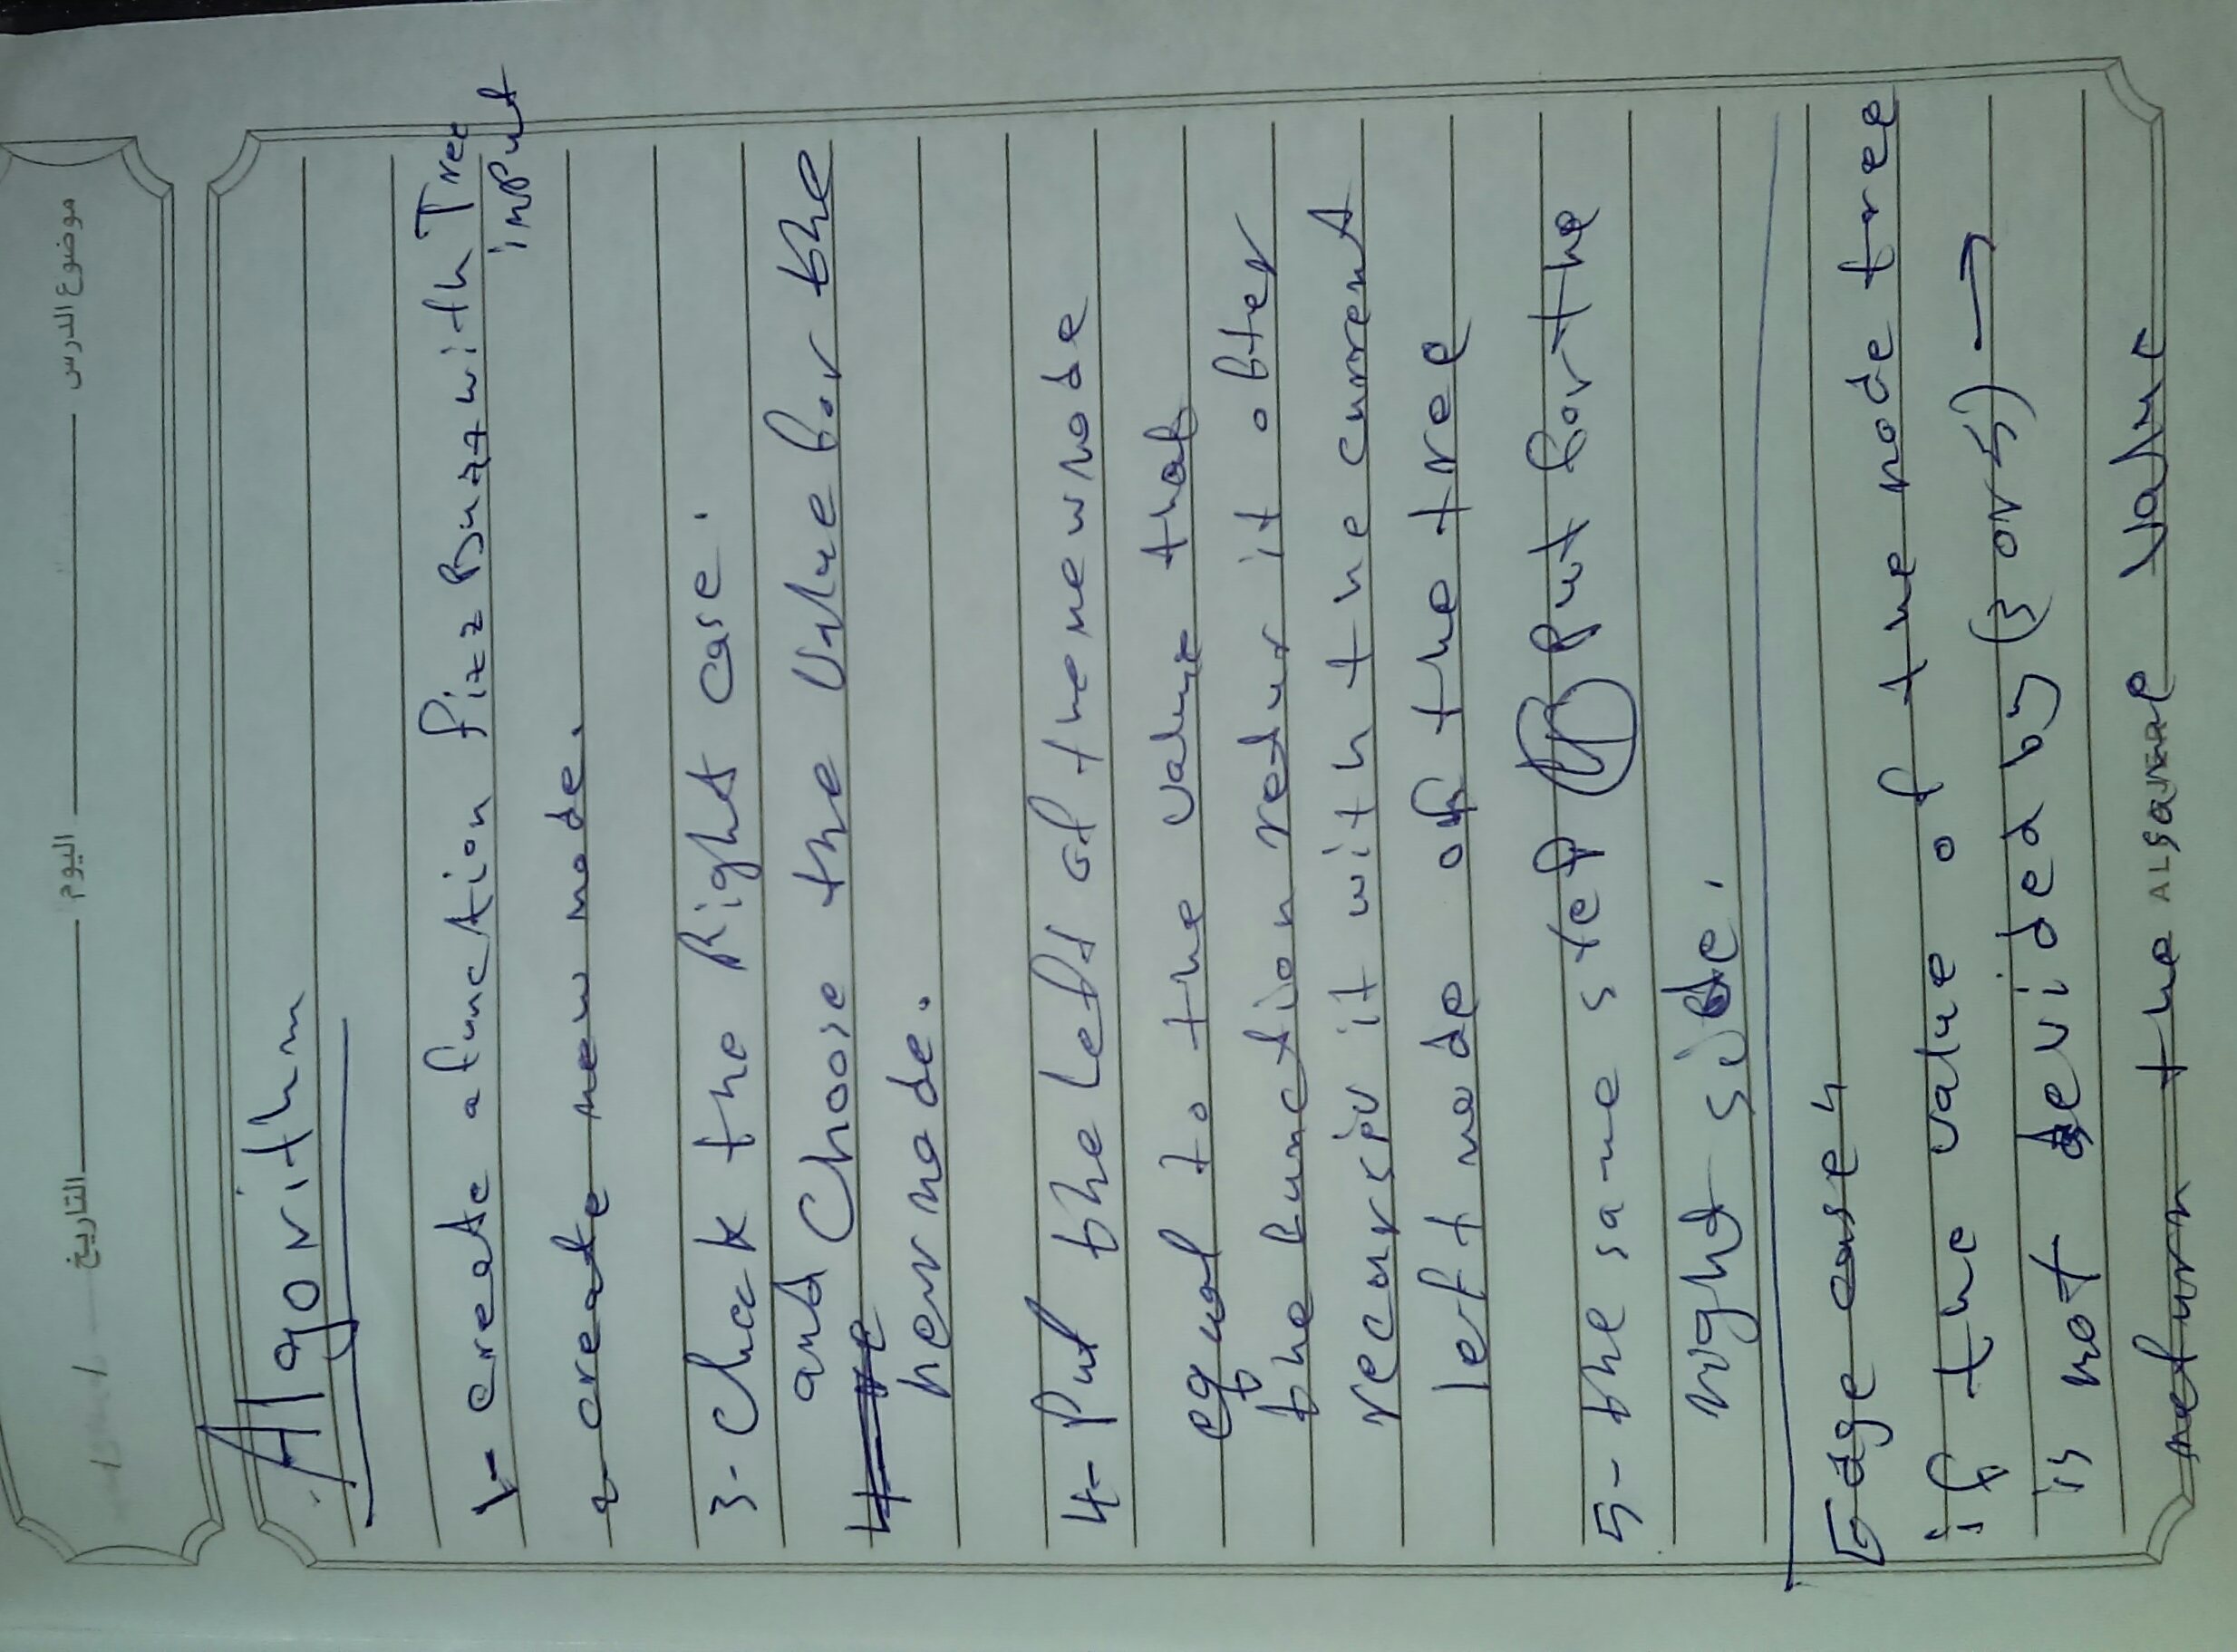 موضوع الدرس اليوم التاريخ
Algorithm
1- create a function fizzBuzzwith Tree
input
2- create new node.
3- Chack the Right case.
and Choose the Value for the
new node.
4- Put the Left of the new node
equal to the value that
the function retur it after
recursiv it with the current
left node of the tree
5- the same step put for the
right side.
Edge case 4
if the value of the node tree
is not devided by (3 or 5) →
return the value